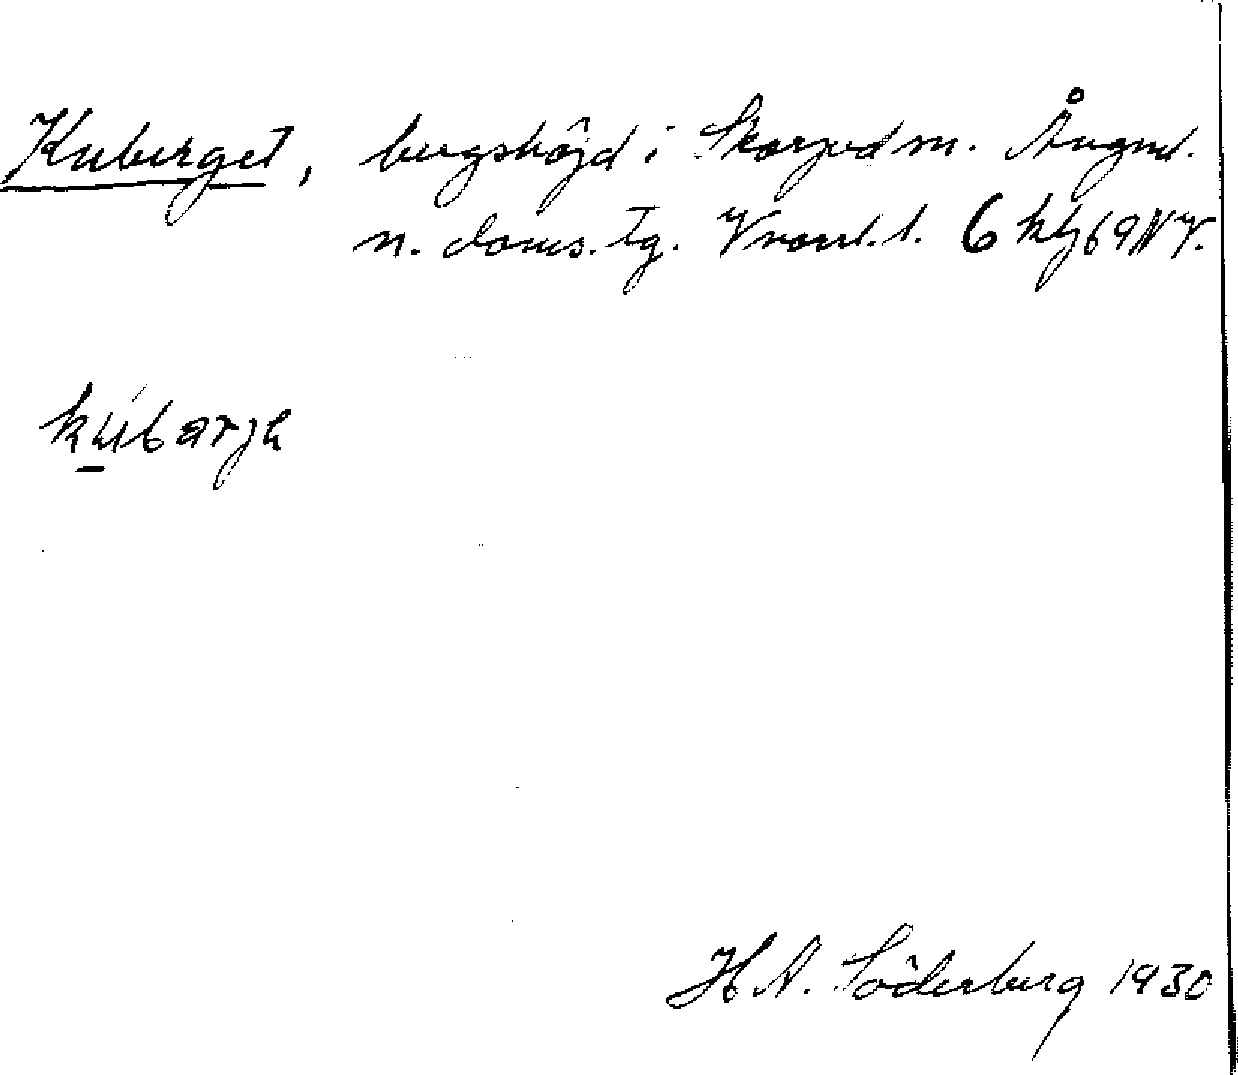 Kuberget, bergshöjd i Skorped sn. Ångml.
n. doms. tg. Västml. l. 6 hbj 69 NV.
kúbarjə
H N. Söderberg 1930